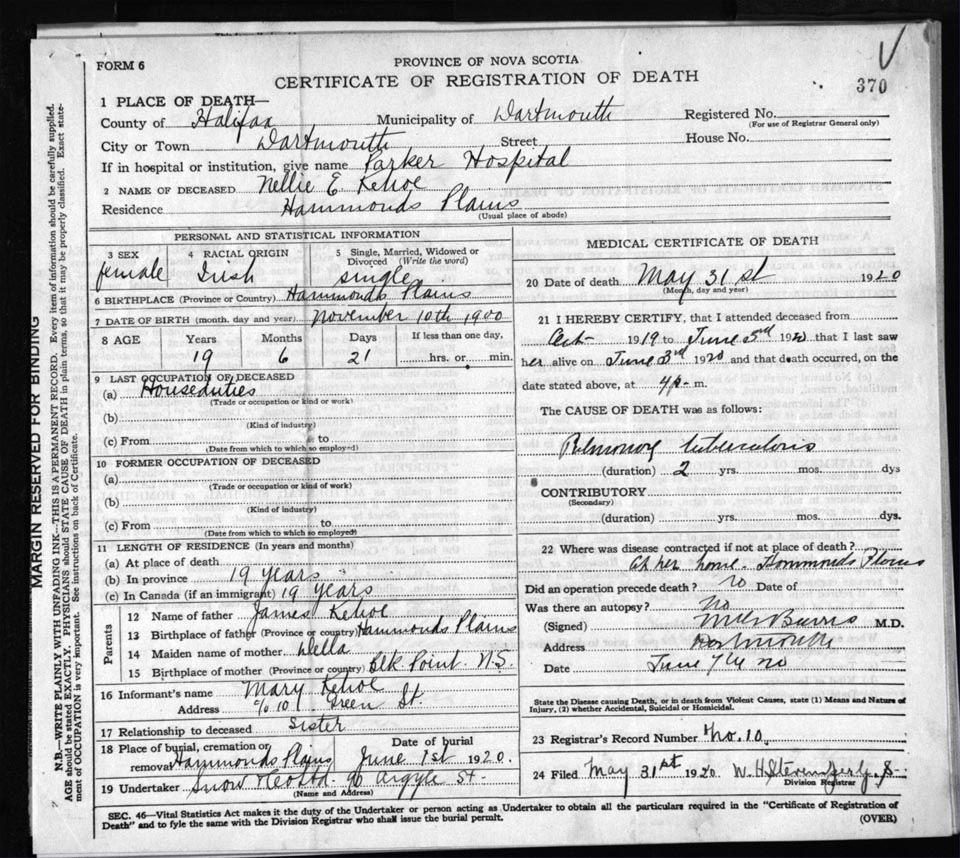 FORM 6
PROVINCE OF NOVA SCOTIA
CERTIFICATE OF REGISTRATION OF DEATH
370
1 PLACE OF DEATH—
County of Halifax Municipality of Dartmouth Registered No.
(For use of Registrar General only)
City or Town Dartmouth Street House No.
If in hospital or institution, give name Parker Hospital
2 NAME OF DECEASED Nellie E. Kehoe
Residence Hammonds Plains
(Usual place of abode)
PERSONAL AND STATISTICAL INFORMATION
3 SEX 4 RACIAL ORIGIN 5 Single, Married, Widowed or Divorced (Write the word)
female Irish single
6 BIRTHPLACE (Province or Country) Hammonds Plains
7 DATE OF BIRTH (month, day and year) November 10th 1900
8 AGE Years Months Days If less than one day,
19 6 21 hrs. or min.
9 LAST OCCUPATION OF DECEASED
(a) Houseduties
(Trade or occupation or kind or work)
(b)
(Kind of industry)
(c) From to
(Date from which to which so employed)
10 FORMER OCCUPATION OF DECEASED
(a)
(Trade or occupation or kind of work)
(b)
(Kind of industry)
(c) From to
(Date from which to which so employed)
11 LENGTH OF RESIDENCE (In years and months)
(a) At place of death
(b) In province 19 years
(c) In Canada (if an immigrant) 19 years
Parents
12 Name of father James Kehoe
13 Birthplace of father (Province or country) Hammonds Plains
14 Maiden name of mother Della
15 Birthplace of mother (Province or country) Blk Point. N.S.
16 Informant's name Mary Kehoe
Address c/o 101 Green St.
17 Relationship to deceased Sister
18 Place of burial, cremation or removal Hammonds Plains Date of burial June 1st 1920.
19 Undertaker Snow & Co Ltd. 90 Argyle St.
(Name and Address)
MEDICAL CERTIFICATE OF DEATH
20 Date of death May 31st 1920
(Month, day and year)
21 I HEREBY CERTIFY, that I attended deceased from
Oct 1919 to June 3rd 1920 that I last saw
her alive on June 3rd 1920 and that death occurred, on the
date stated above, at 4 p. m.
The CAUSE OF DEATH was as follows:
Pulmonary tuberculosis
(duration) 2 yrs. mos. dys
CONTRIBUTORY
(Secondary)
(duration) yrs. mos. dys.
22 Where was disease contracted if not at place of death?
At her home. Hammonds Plains
Did an operation precede death? no Date of
Was there an autopsy? No
(Signed) Burris M.D.
Address Dartmouth
Date June 7th 20
State the Disease causing Death, or in death from Violent Causes, state (1) Means and Nature of Injury, (2) whether Accidental, Suicidal or Homicidal.
23 Registrar's Record Number No. 10
24 Filed May 31st 1920 W. H. Stevens
Division Registrar
SEC. 46—Vital Statistics Act makes it the duty of the Undertaker or person acting as Undertaker to obtain all the particulars required in the "Certificate of Registration of
Death" and to fyle the same with the Division Registrar who shall issue the burial permit. (OVER)
MARGIN RESERVED FOR BINDING
N.B.—WRITE PLAINLY WITH UNFADING INK—THIS IS A PERMANENT RECORD. Every item of information should be carefully supplied.
AGE should be stated EXACTLY. PHYSICIANS should STATE CAUSE OF DEATH in plain terms, so that it may be properly classified. Exact state-
ment of OCCUPATION is very important. See instructions on back of Certificate.